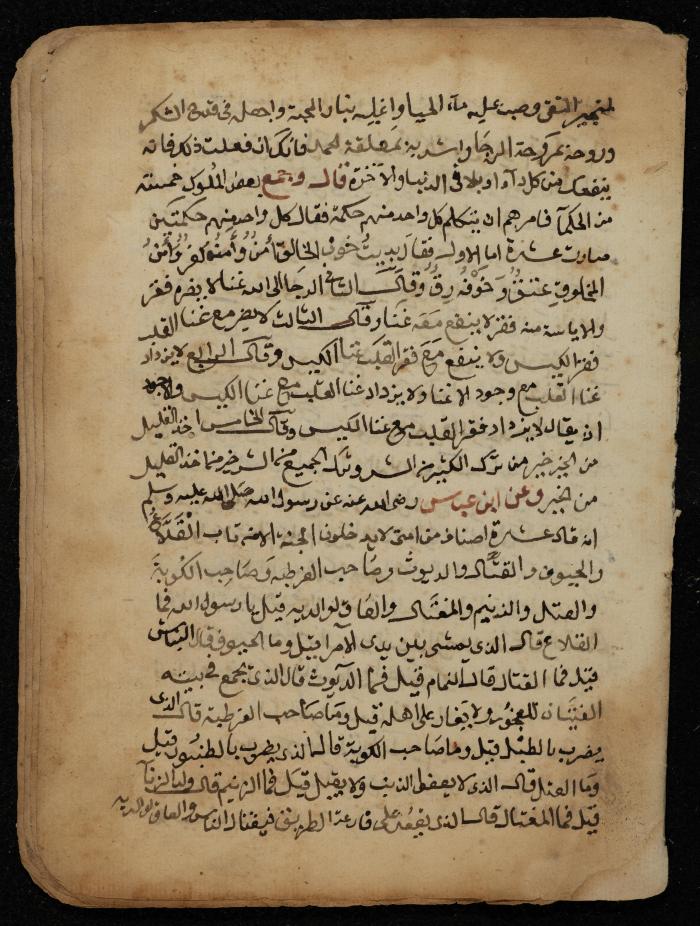 لمنجير التقى وصب عليه مآء الحيا واغليه بنار المحبة واجعله فى قدح الشكر
وروحه بمروحة الرجا واشربه بمعلقة الحمد فانك ان فعلت ذلك فانه
ينفعك من كل دآء وبلا فى الدنيا والآخرة قال وجمع بعض الملوك خمسة
من الحكمآ فامرهم ان يتكلم كل واحد منهم حكمة فقال كل واحد منهم حكمتين
صارت عشرة اما الاول فقال بديت خوف الخالق أمنٌ وأمنُهُ كفرٌ وأمنُ
المخلوق عتقٌ وَخَوْفُه رِقٌ وقال الثانى الرجا الى الله غنا لا يضره فقر
والاياسة منه فقر لا ينفع معه غنا وقال الثالث لا يضر مع غنا القلب
فقر الكيس ولا ينفع مع فقر القلب غنا الكيس وقال الرابع لا يزداد
غنا القلب مع وجود الاغنا ولا يزداد غنا القلب مع غنا الكيس والاجود
ان يقال لا يزداد فقر القلب مع غنا الكيس وقال الخامس اخذ القليل
من الخير خير من ترك الكثير من الشر وترك الجميع من الشر خير من اخذ القليل
من الخير وعن ابن عباس رضى الله عنه عن رسول الله صلى الله عليه وسلم
انه قال عشرة اصناف من امتى لا يدخلون الجنة الا من تاب القَلّاعُ
والجيوف والقتّال والديوث وصاحب العرطبه وصاحب الكوبة
والعتل والزنيم والمغتال والعاق لوالديه قيل يا رسول الله فما
القلاع قال الذى يمشى بين يدى الامرا قيل وما الجيوف قال النباش
قيل فما القتال قال النمام قيل فما الديوث قال الذى يجمع فى بيته
الفتيان للفجور ولا يغار على اهله قيل وما صاحب العرطبة قال الذى
يضرب بالطبل قيل وما صاحب الكوبة قال الذى يضرب بالطنبور قيل
وما العتل قال الذى لا يعفو الذنب ولا يقبل قيل فما الزنيم قال ولد الزنا
قيل فما المغتال قال الذى يقعد على قارعة الطريق فيغتال الناس والعاق لوالديه